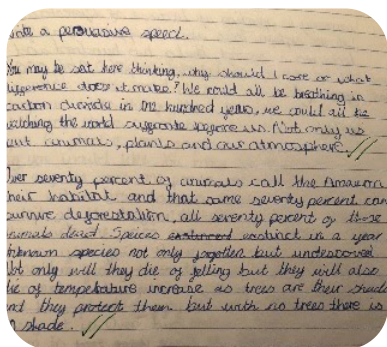 a persuasive speech.
You may be sat here thinking, why should I care or what
difference does it make? We could all be breathing in
carbon dioxide in one hundred years, we could all be
watching the world suffocate before us. Not only us
but animals, plants and our atmosphere.
Over seventy percent of animals call the Amazon
their habitat and that same seventy percent can
survive deforestation, all seventy percent of those
animals dead. Speices exstinct in a year
Unknown species not only forgotten but undescoverd
Not only will they die of felling but they will also
die of temperature increase as trees are their shade
and they protect them but with no trees there is
shade.